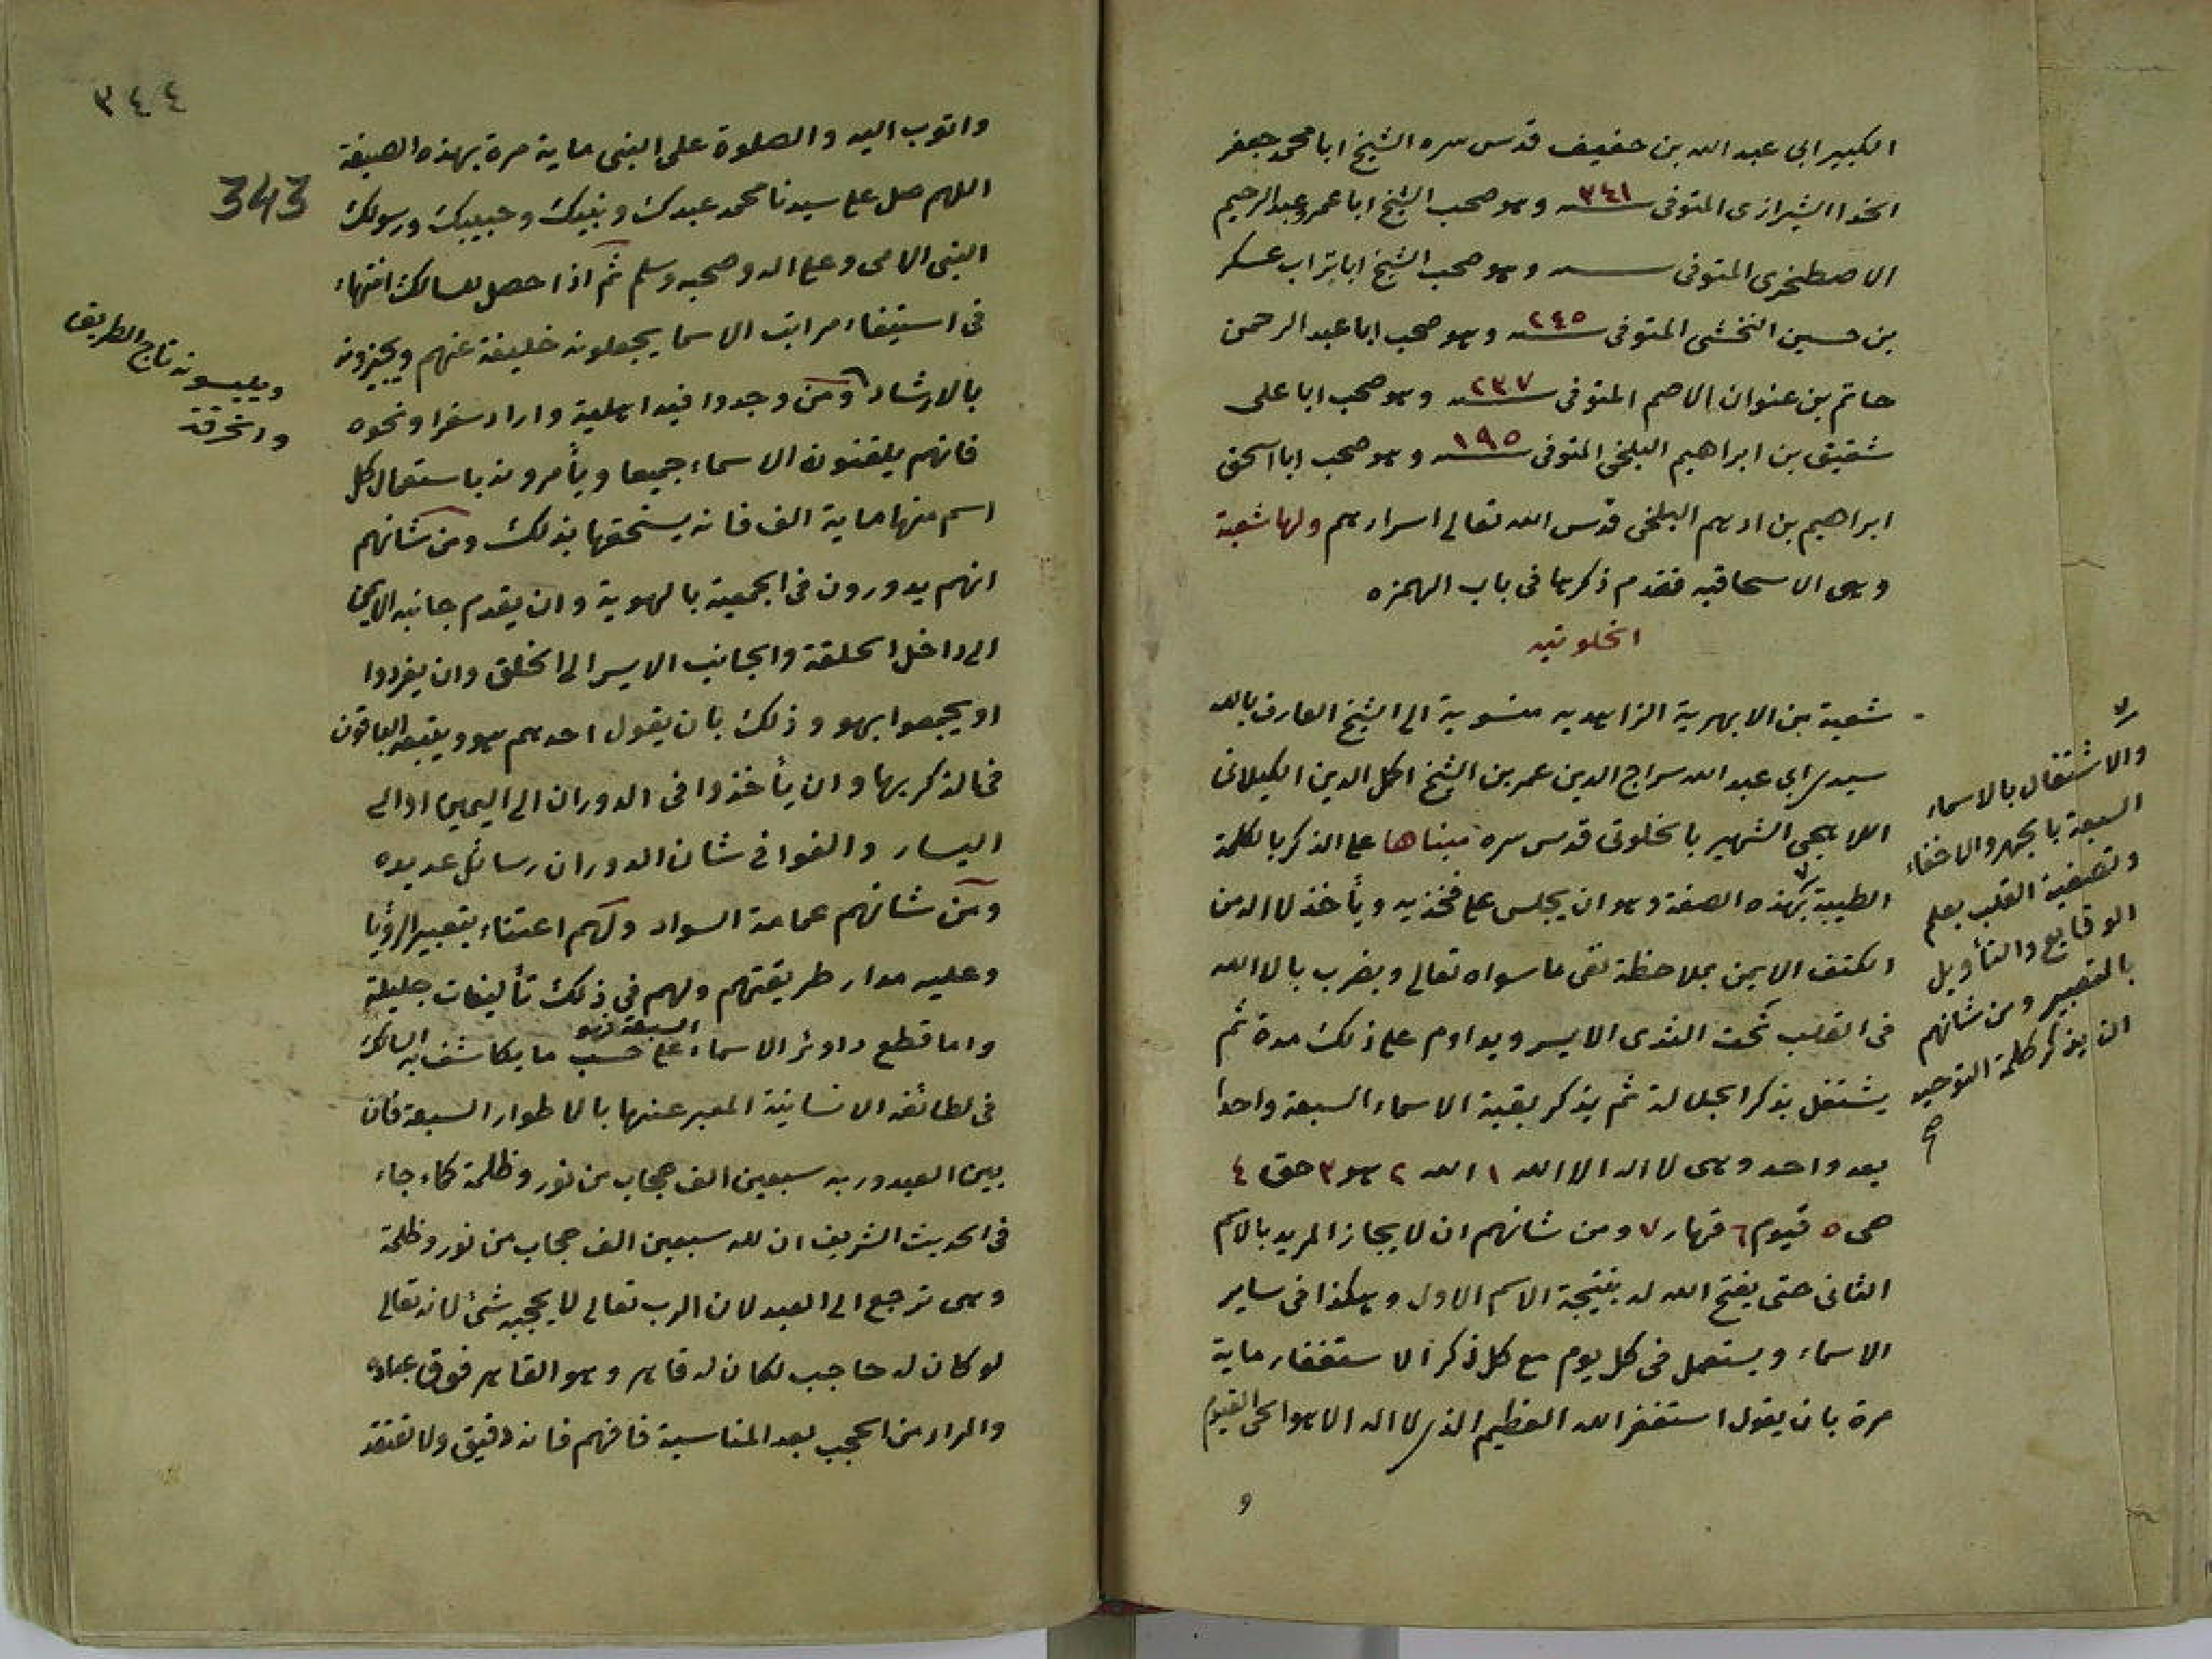 الكبير ابى عبد الله بن حفيف قدس سره الشيخ ابا محمد جعفر
الخدا الشيرازى المتوفى سنه ٣٤١ وهو صحب الشيخ ابا عمرو عبد الرحيم
الاصطخرى المتوفى سنه وهو صحب الشيخ ابا تراب عسكر
بن حسين النخشى المتوفى سنه ٢٤٥ وهو صحب ابا عبد الرحمن
حاتم بن عنوان الاصم المتوفى سنه ٢٣٧ وهو صحب ابا على
شقيق بن ابراهيم البلخى المتوفى سنه ١٩٥ وهو صحب ابا اسحق
ابراهيم بن ادهم البلخى قدس الله تعالى اسرارهم ولها شعبة
وهى الاسحاقيه فقدم ذكرها فى باب الهمزه
الخلوتيه
شعبة من الابهرية الزاهديه منسوبة الى الشيخ العارف بالله
سيدى ابى عبد الله سراج الدين عمر بن الشيخ اكمل الدين الكيلانى
اللاهجى الشهير بالخلوتى قدس سره مبناها على الذكر بالكلمة
الطيبة بهذه الصفة وهو ان يجلس على فخذيه ويأخذ لا اله من
الكتف الايمن بملاحظة نفى ما سواه تعالى ويضرب بالا الله
فى القلب تحت الثدى الايسر ويداوم على ذلك مدة ثم
يشتغل بذكر الجلالة ثم يذكر بقية الاسماء السبعة واحدا
بعد واحد وهى لا اله الا الله ١ الله ٢ هو ٣ حق ٤
حى ٥ قيوم ٦ قهار ٧ ومن شانهم ان لا يجاز المريد بالاسم
الثانى حتى يفتح الله له بنتيجة الاسم الاول وهكذا فى ساير
الاسماء ويستعمل فى كل يوم مع كل ذكر الاستغفار ماية
مرة بان يقول استغفر الله العظيم الذى لا اله الا هو الحى القيوم
و
والاشتغال بالاسماء
السبعة بالجهر والاخفاء
وتصفية القلب بعلم
الوقايع والتأويل
بالتعبير ومن شانهم
ان يذكر كلمة التوحيد
صح
٣٤٤
343
واتوب اليه والصلوة على النبى ماية مرة بهذه الصيغة
اللهم صل على سيدنا محمد عبدك ونبيك وحبيبك ورسولك
النبى الامى وعلى اله وصحبه وسلم ثم اذا حصل للسالك انتهاء
فى استيفاء مراتب الاسما يجعلونه خليفة عنهم ويجيزونه
بالارشاد ومن وجدوا فيه اهلية واراد سفرا ونحوه
فانهم يلقنون الاسماء جميعا ويأمرونه باستعمال كل
اسم منها ماية الف فانه يستحقها بذلك ومن شانهم
انهم يدورون فى الجمعية بالهوية وان يقدم جانبه الايمن
الى داخل الحلقة والجانب الايسر الى الخلق وان يفردوا
او يجمعوا بهو وذلك بان يقول احدهم هو ويتبعه الباقون
فى الذكر بها وان يأخذوا فى الدوران الى اليمين او الى
اليسار والفوا فى شان الدوران رسائل عديده
ومن شانهم عمامة السواد ولهم اعتناء بتعبير الرؤيا
وعليه مدار طريقتهم ولهم فى ذلك تأليفات جليلة
واما قطع دوائر الاسماء السبعة فهو على حسب ما يكاشف به السالك
فى لطائفه الانسانية المعبر عنها بالاطوار السبعة فان
بين العبد وربه سبعين الف حجاب من نور وظلمة كما جاء
فى الحديث الشريف ان لله سبعين الف حجاب من نور وظلمة
وهى ترجع الى العبد لان الرب تعالى لا يحجبه شئ لانه تعالى
لو كان له حاجب لكان له قاهر وهو القاهر فوق عباده
والمراد من الحجب بعد المناسبة فافهم فانه دقيق ولا تعتقد
ويلبسونه تاج الطريق
والخرقة